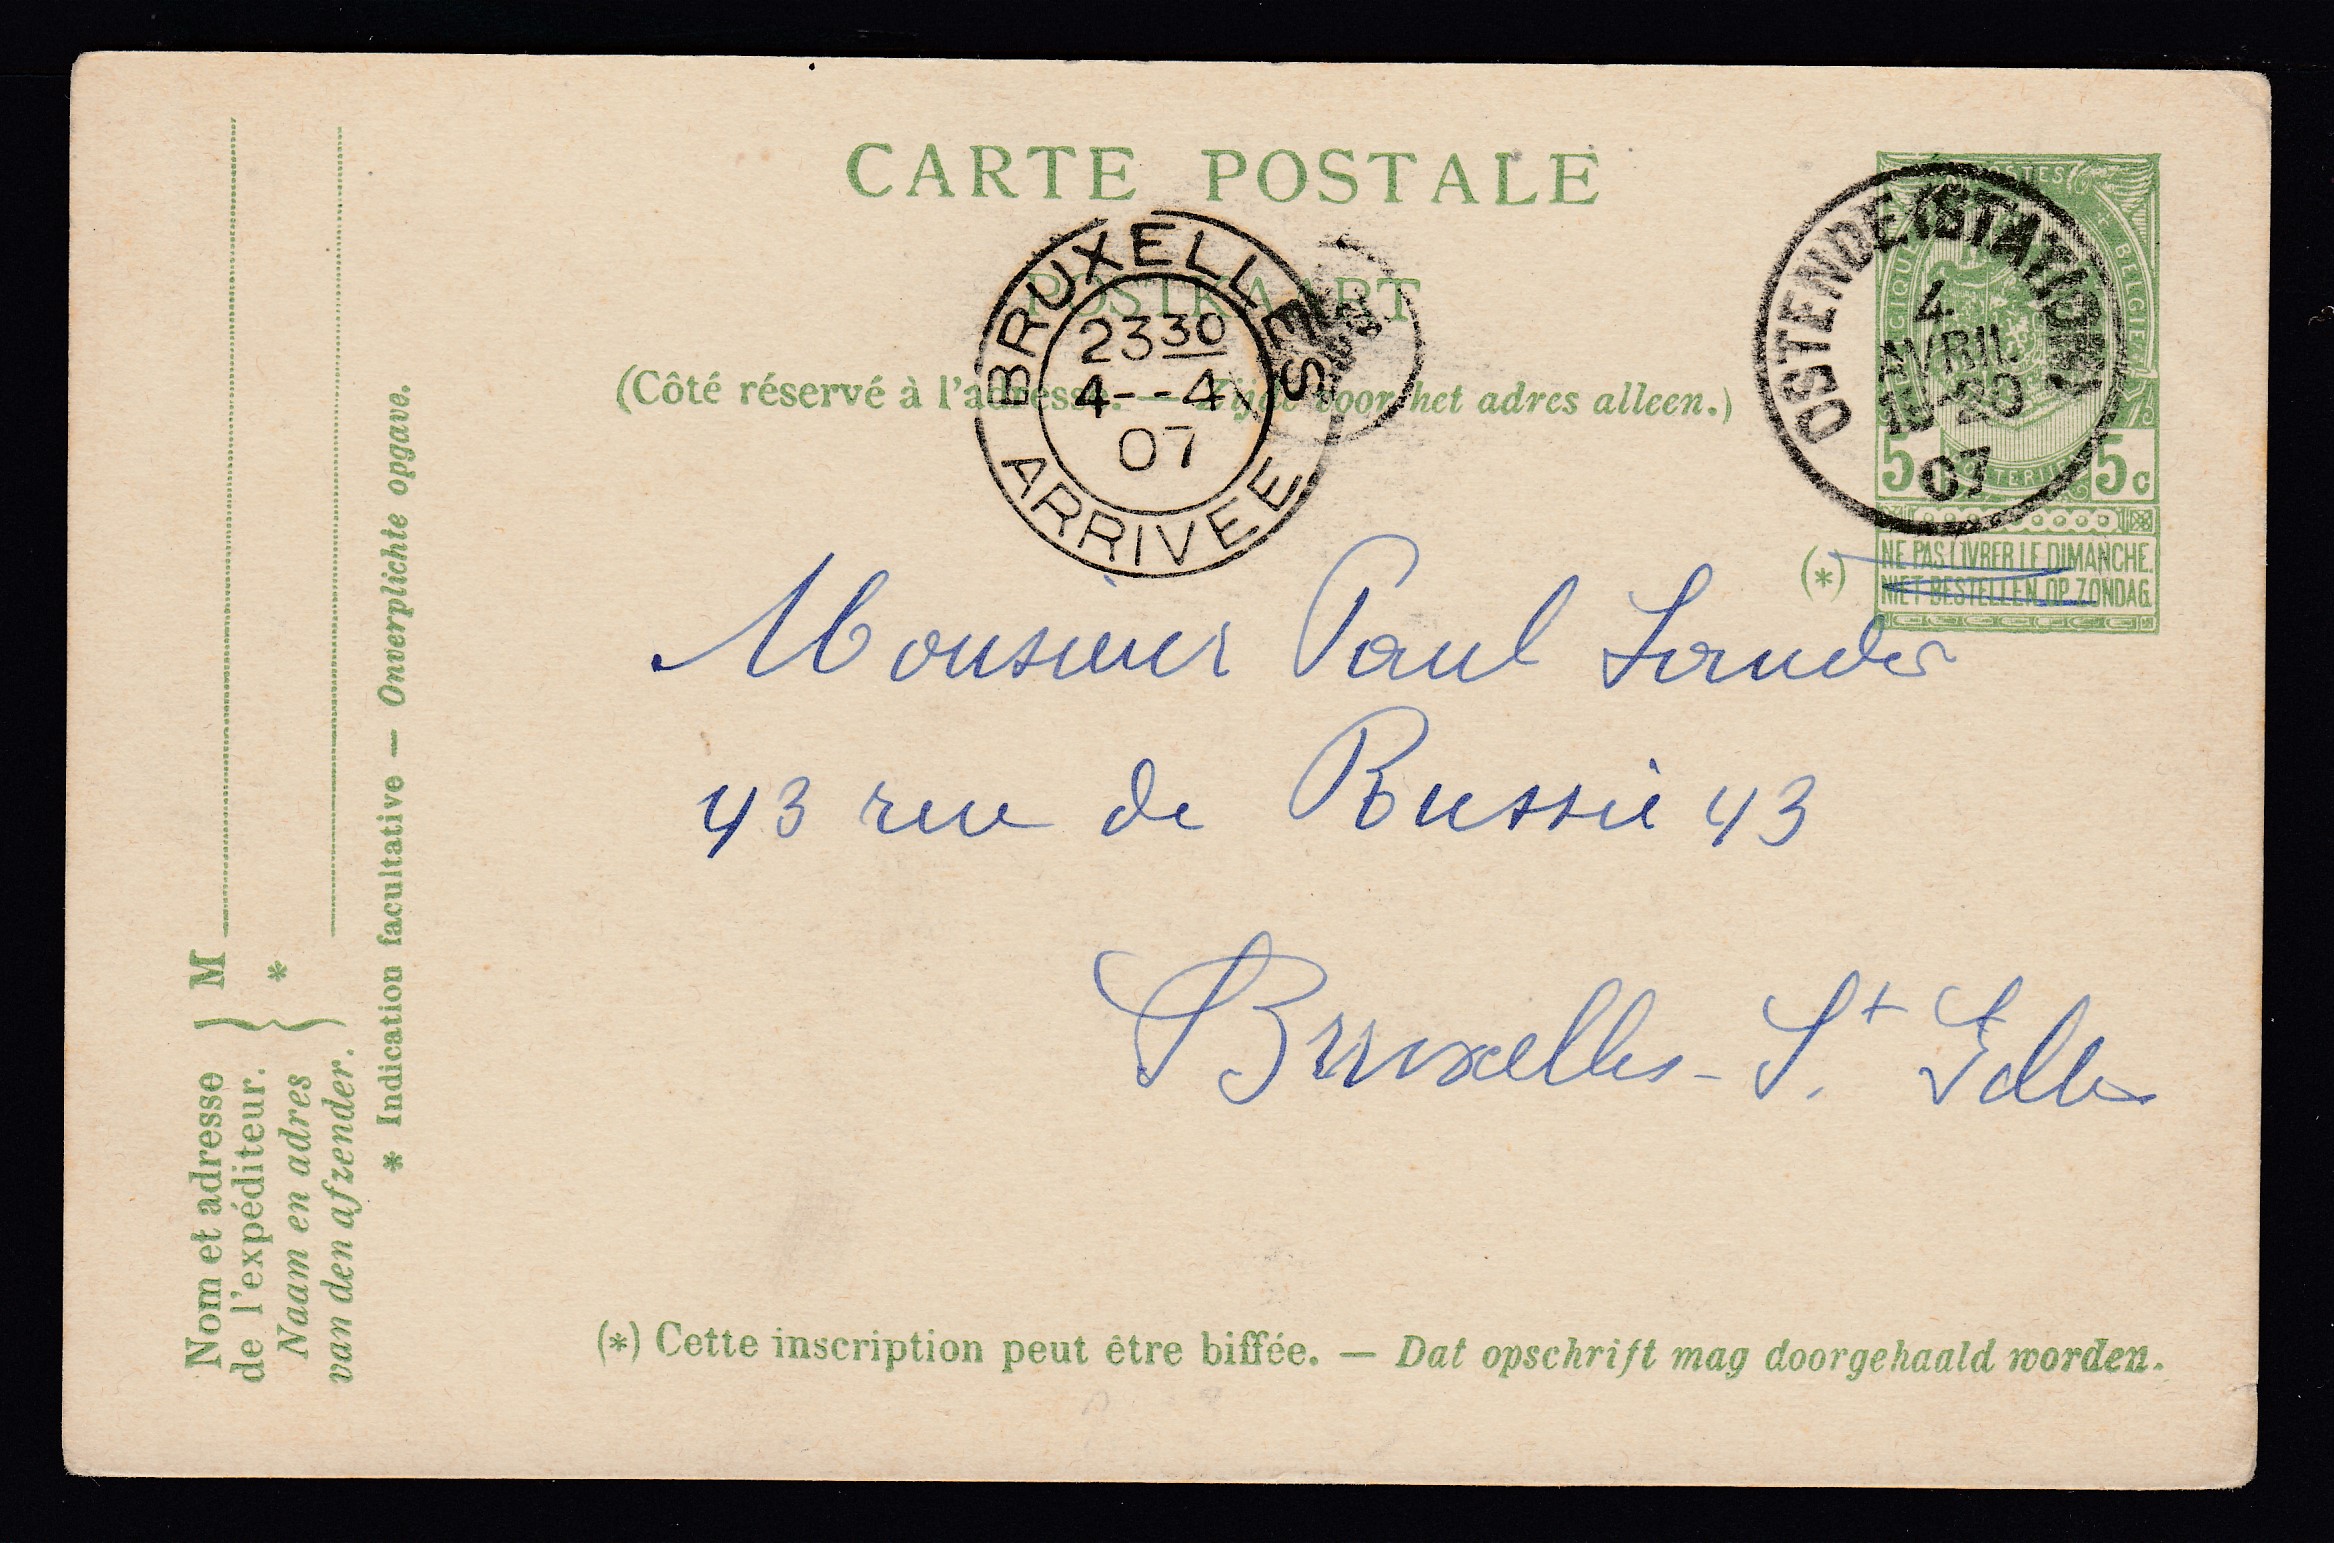 CARTE POSTALE
POSTKAART
(Côté réservé à l'adresse. — Zijde voor het adres alleen.)
BRUXELLES
23 30
4--4
07
ARRIVEE
OSTENDE (STATION)
4
AVRIL
-20
07
BELGIQUE
BELGIE
5
5c
(*)
NE PAS LIVRER LE DIMANCHE.
NIET BESTELLEN OP ZONDAG.
Monsieur Paul
43 rue de Russie 43
Bruxelles - St
(*) Cette inscription peut être biffée. — Dat opschrift mag doorgehaald worden.
Nom et adresse
de l'expéditeur.
Naam en adres
van den afzender.
M
*
* Indication facultative — Onverplichte opgave.